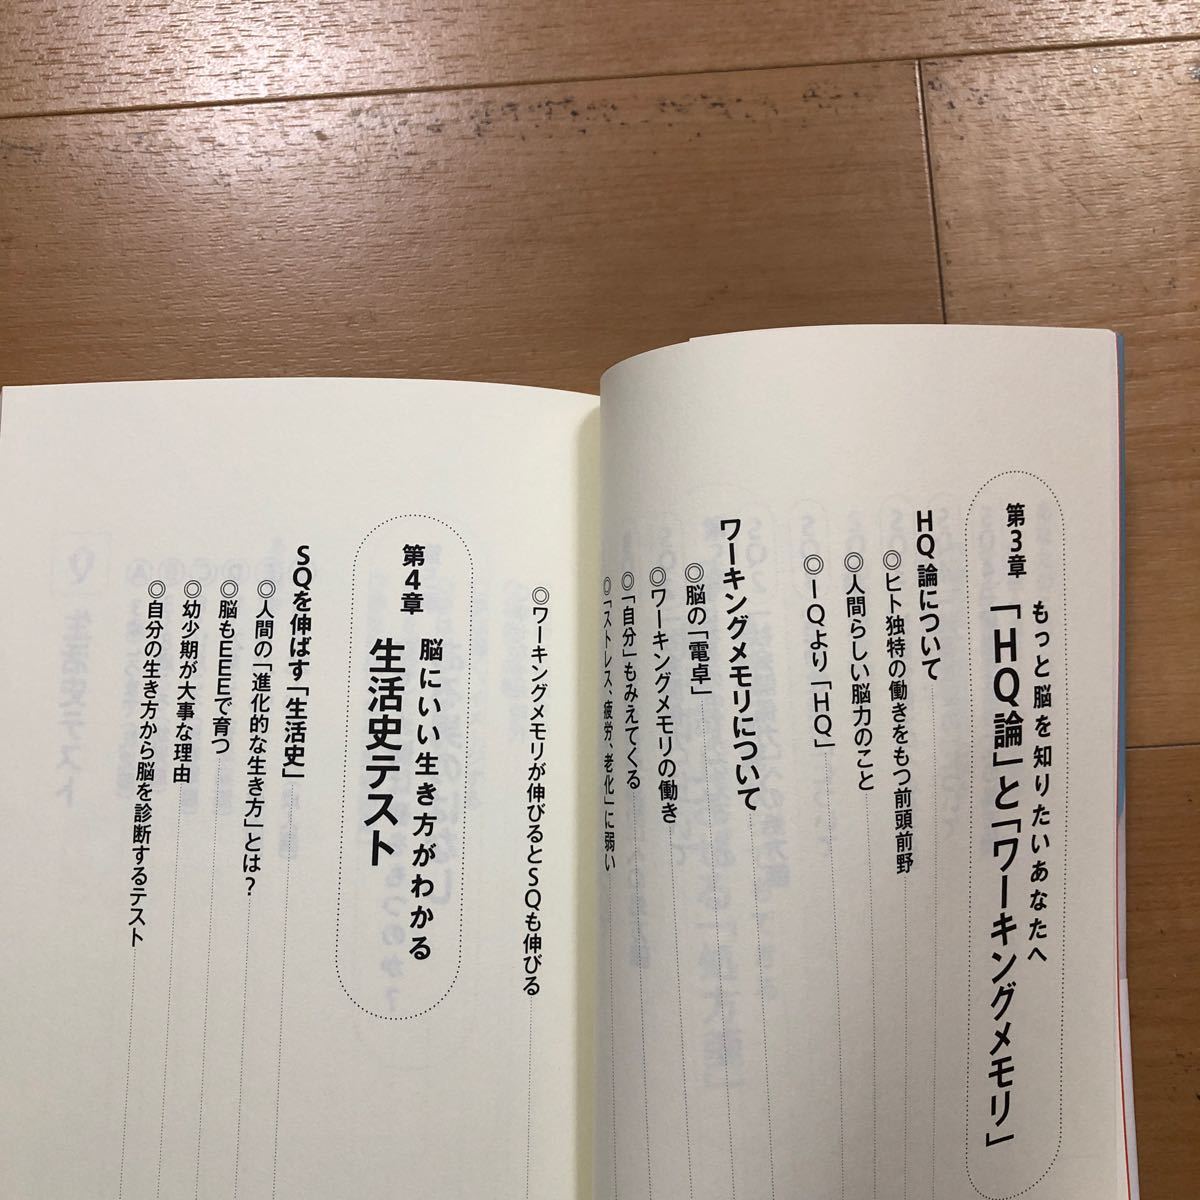 第3章 もっと脳を知りたいあなたへ
「HQ論」と「ワーキングメモリ」
HQ論について
◎ヒト独特の働きをもつ前頭前野
◎人間らしい脳力のこと
◎IQより「HQ」
ワーキングメモリについて
◎脳の「電卓」
◎ワーキングメモリの働き
◎「自分」もみえてくる
◎「ストレス、疲労、老化」に弱い
◎ワーキングメモリが伸びるとSQも伸びる
第4章 脳にいい生き方がわかる
生活史テスト
SQを伸ばす「生活史」
◎人間の「進化的な生き方」とは?
◎脳もEEEで育つ
◎幼少期が大事な理由
◎自分の生き方から脳を診断するテスト